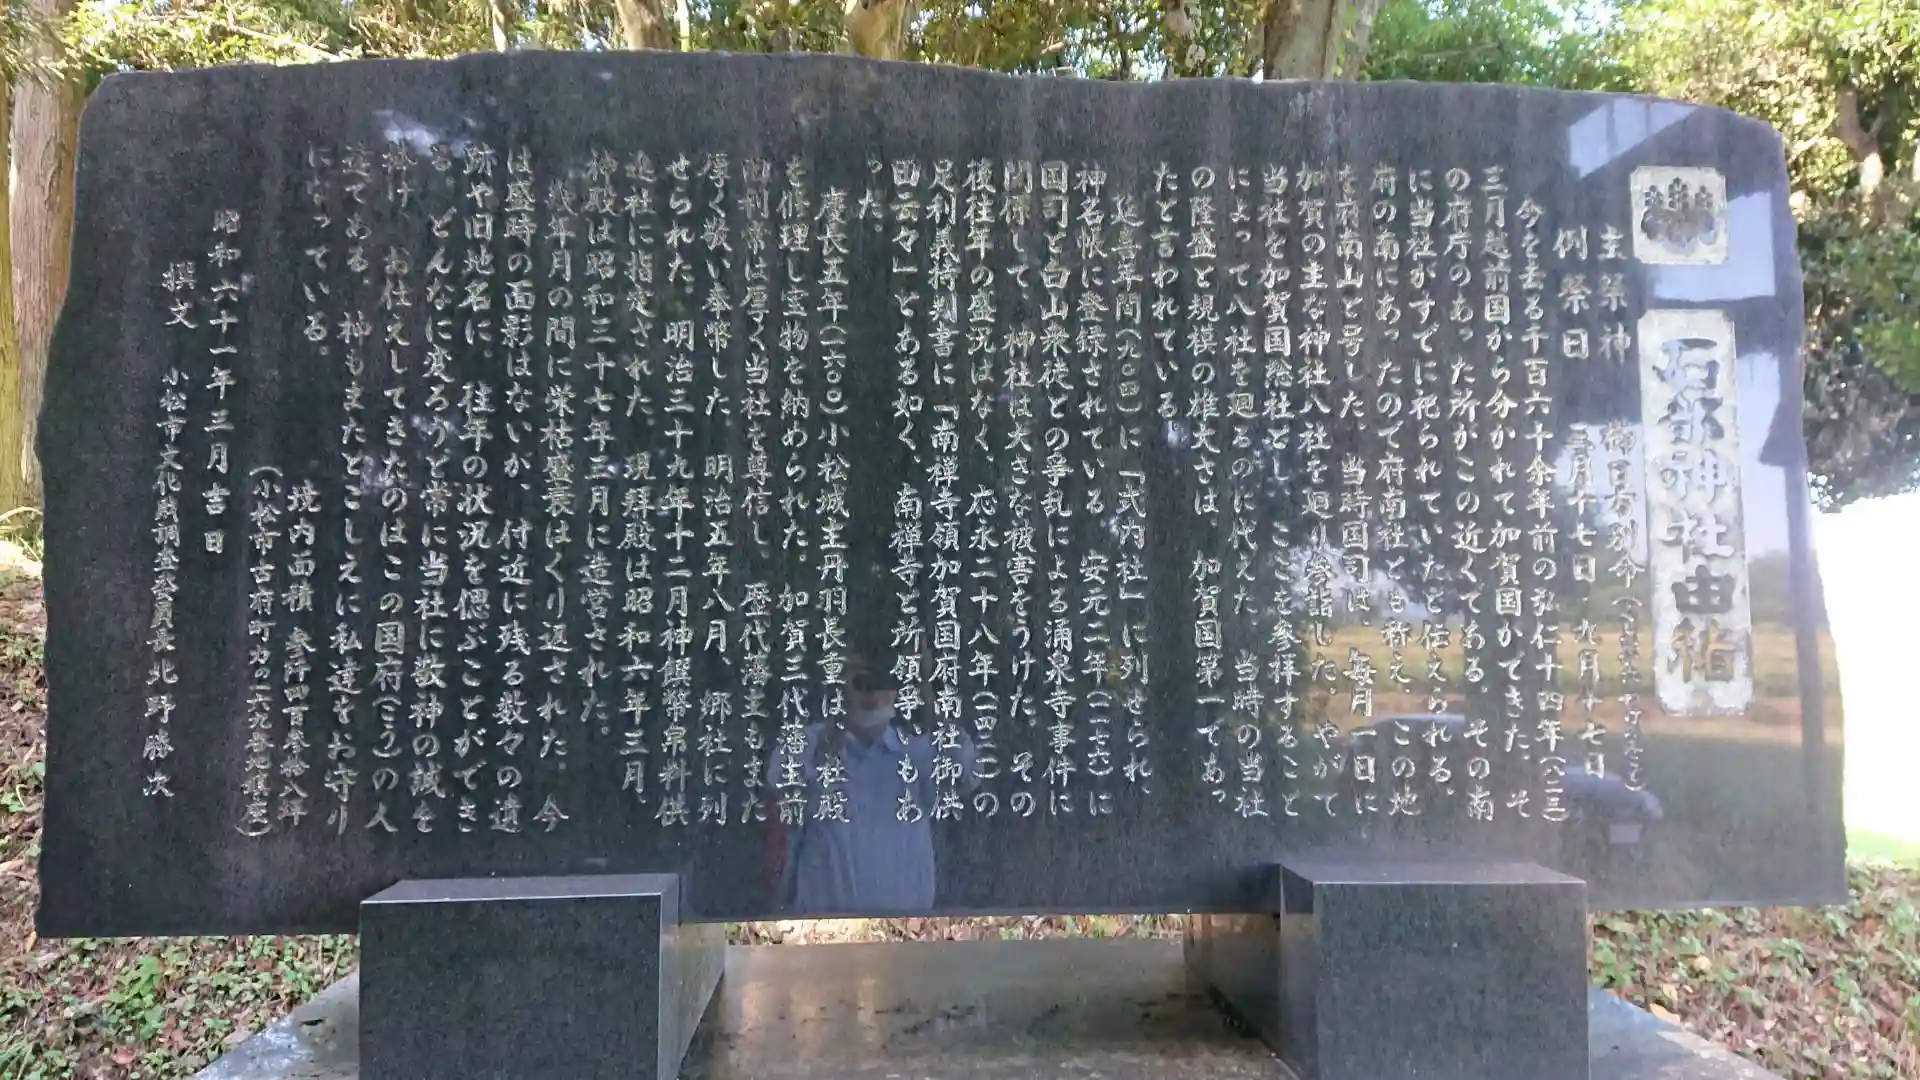 石部神社由緒
主祭神 櫛日方別命
例祭日 三月十七日 九月十七日
今を去る千百六十余年前の弘仁十四年(八二三)
三月越前国から分かれて加賀国ができた。そ
の府庁のあった所がこの近くである。その南
に当社がすでに祀られていたと伝えられる。
府の南にあったので府南社とも称え、この地
を府南山と号した。当時国司は、毎月一日に
加賀の主な神社八社を廻り参詣した。やがて
当社を加賀国総社とし、ここを参拝すること
によって八社を廻るのに代えた。当時の当社
の隆盛と規模の雄大さは、加賀国第一であっ
たと言われている。
延喜年間(九〇四)に「式内社」に列せられ、
神名帳に登録されている。安元二年(一一七六)に
国司と白山衆徒との争乱による涌泉寺事件に
関係して、神社は大きな被害をうけた。その
後往年の盛況はなく、応永二十八年(一四二一)の
足利義持判書に「南禅寺領加賀国府南社御供
田云々」とある如く、南禅寺と所領争いもあ
った。
慶長五年(一六〇〇)小松城主丹羽長重は、社殿
を修理し宝物を納められた。加賀三代藩主前
田利常は厚く当社を尊信し、歴代藩主もまた
厚く敬い奉幣した。明治五年八月、郷社に列
せられた。明治三十九年十二月神饌幣帛料供
進社に指定された。現拝殿は昭和六年三月、
神殿は昭和三十七年三月に造営された。
幾年月の間に栄枯盛衰はくり返された。今
は盛時の面影はないが、付近に残る数々の遺
跡や旧地名に、往年の状況を偲ぶことができ
る。どんなに変ろうと常に当社に敬神の誠を
捧げ、お仕えしてきたのはこの国府(こう)の人
達である。神もまたとこしえに私達をお守り
になっている。
境内面積 参阡四百参拾八坪
(小松市古府町カの一六九番地鎮座)
昭和六十一年三月吉日
撰文 小松市文化財調査委員長北野勝次